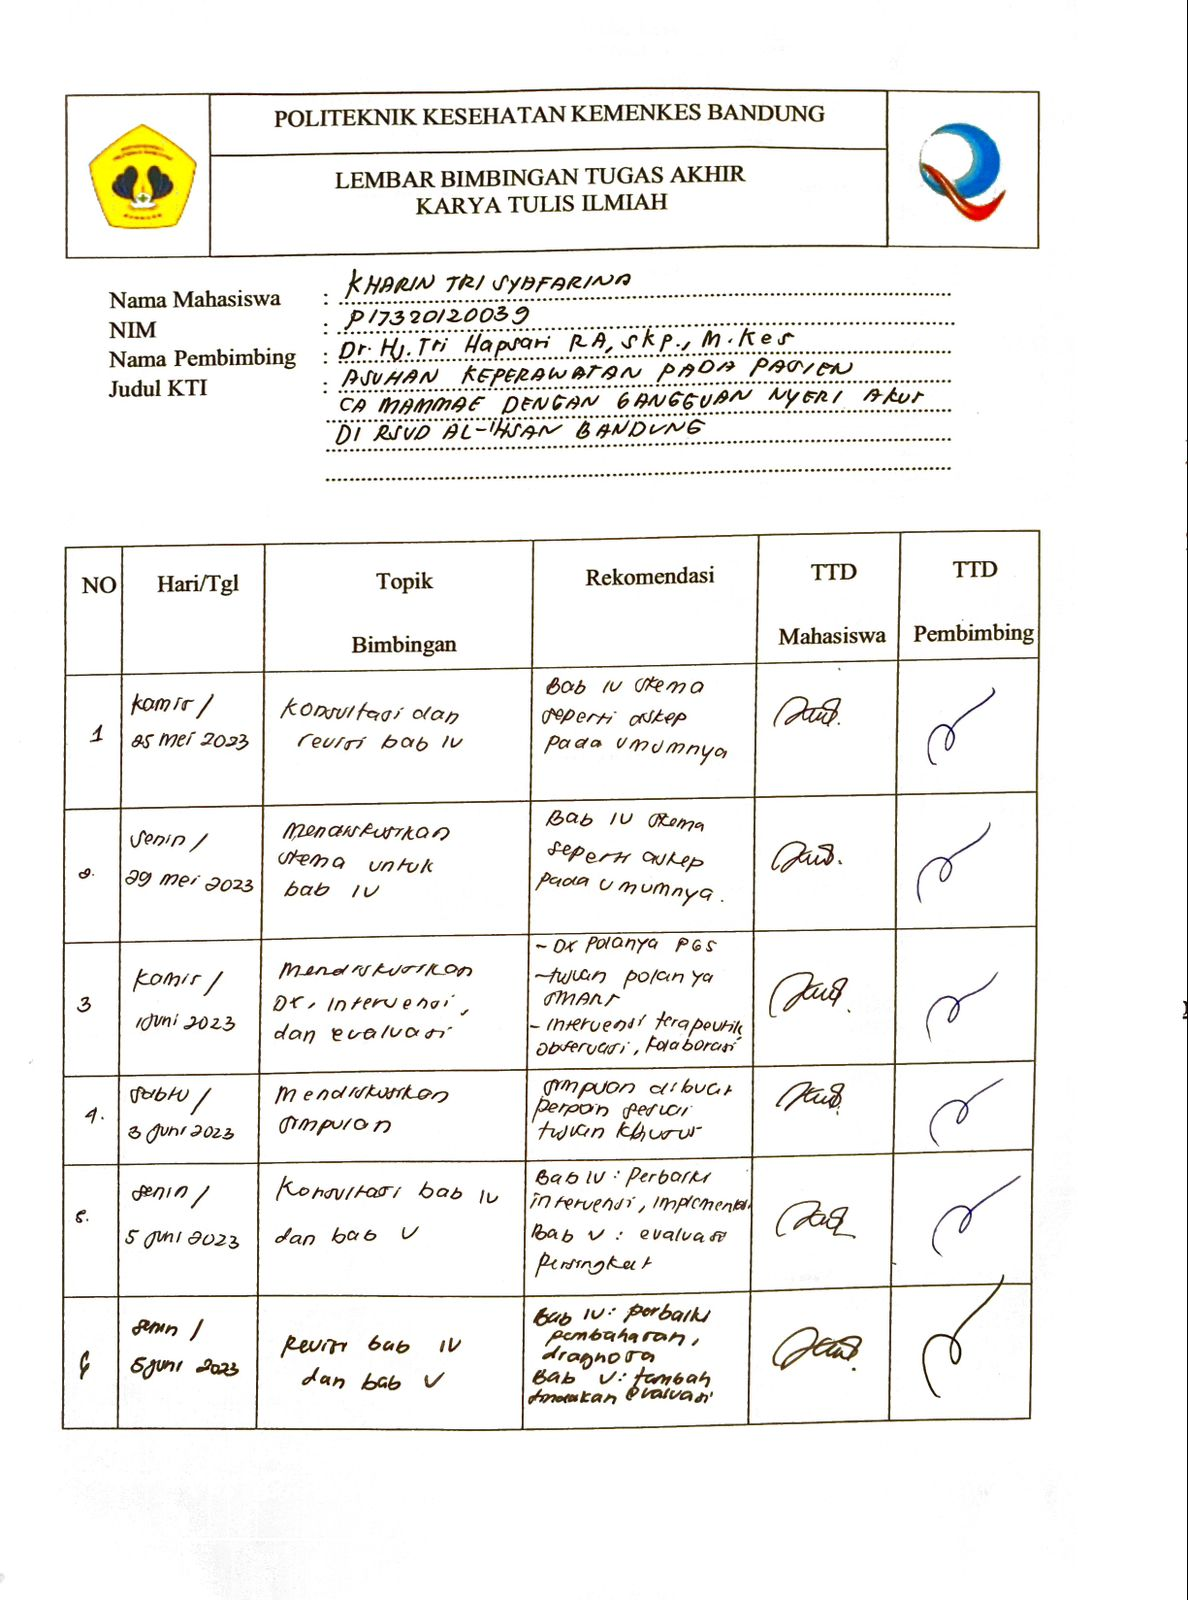 POLITEKNIK KESEHATAN KEMENKES BANDUNG
LEMBAR BIMBINGAN TUGAS AKHIR
KARYA TULIS ILMIAH
Nama Mahasiswa : KHARIN TRI SYAFARINA
NIM : P17320120039
Nama Pembimbing : Dr. Hj. Tri Hapsari RA, Skp., M.Kes
Judul KTI : ASUHAN KEPERAWATAN PADA PASIEN
CA MAMMAE DENGAN GANGGUAN NYERI AKUT
DI RSUD AL-IHSAN BANDUNG
NO Hari/Tgl Topik Bimbingan Rekomendasi TTD Mahasiswa TTD Pembimbing
1
kamis /
25 mei 2023
Konsultasi dan
revisi bab IV
Bab IV skema
seperti askep
pada umumnya
2.
Senin /
29 mei 2023
Mendiskusikan
skema untuk
bab IV
Bab IV skema
seperti askep
pada umumnya.
3
kamis /
1 juni 2023
Mendiskusikan
DX, intervensi,
dan evaluasi
- DX polanya PES
- tujuan polanya
SMART
- intervensi terapeutik,
observasi, kolaborasi
4.
sabtu /
3 juni 2023
Mendiskusikan
simpulan
simpulan dibuat
perpoin sesuai
tujuan khusus
5.
senin /
5 juni 2023
Konsultasi bab IV
dan bab V
Bab IV : Perbaiki
intervensi, implementasi
Bab V : evaluasi
persingkat
6
senin /
5 juni 2023
Revisi bab IV
dan bab V
Bab IV : perbaiki
pembahasan,
diagnosa
Bab V : tambah
tindakan evaluasi